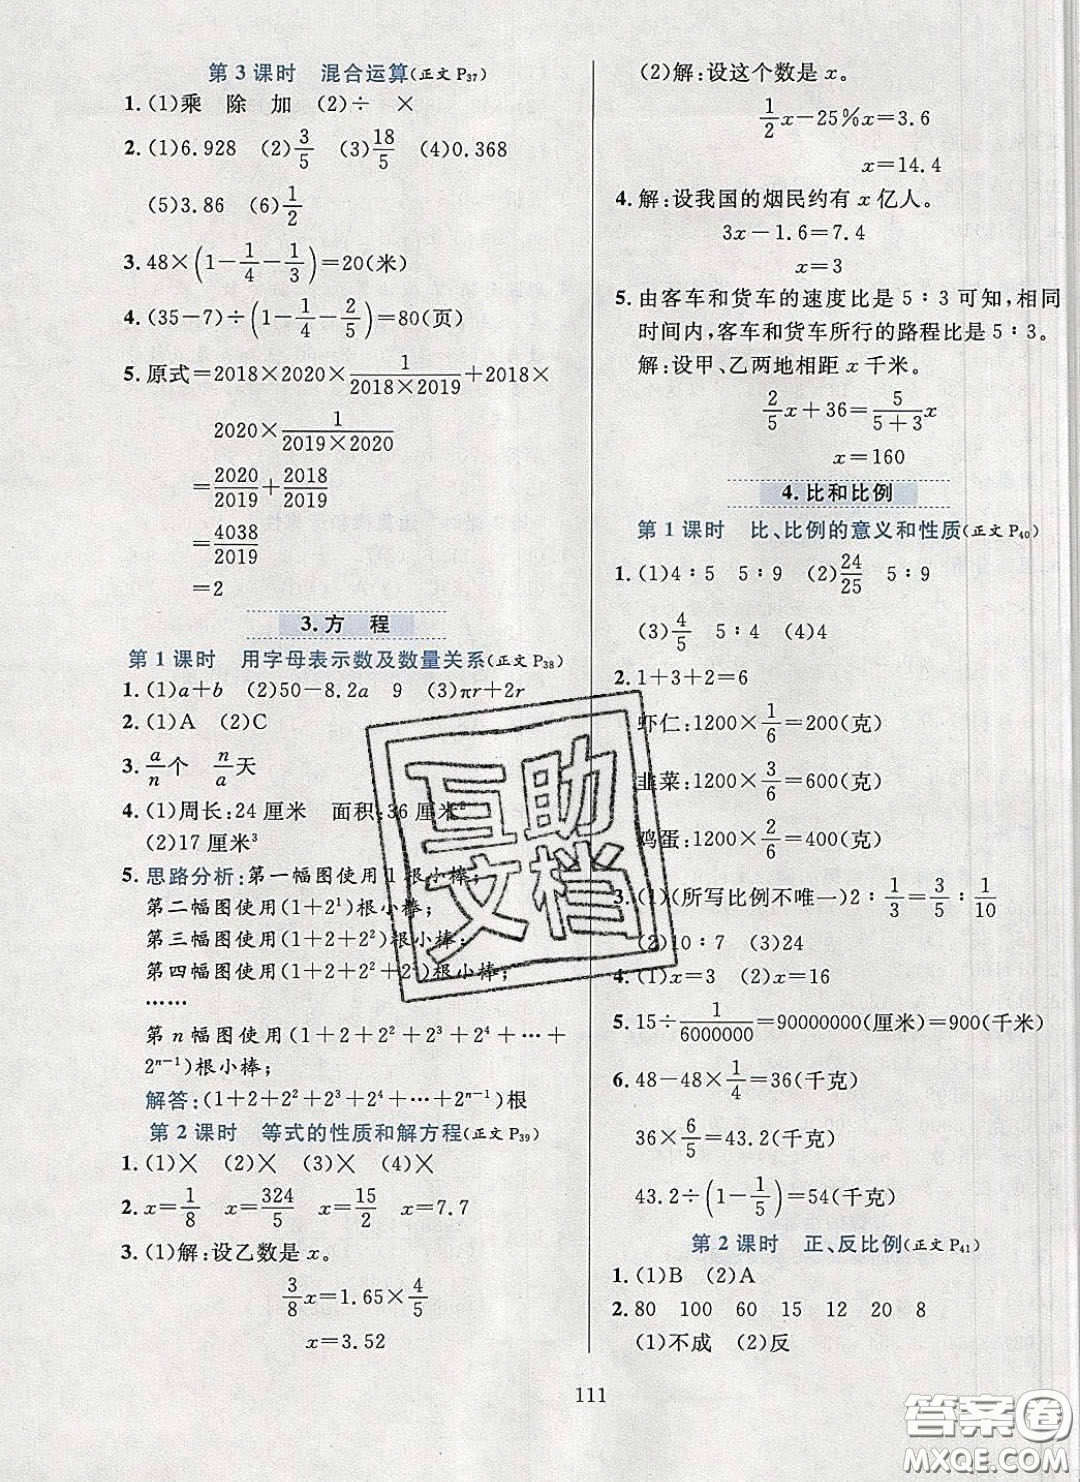 第3课时 混合运算(正文P37)
1.(1)乘 除 加 (2)÷ ×
2.(1)6.928 (2)3/5 (3)18/5 (4)0.368
(5)3.86 (6)1/2
3.48×(1-1/4-1/3)=20(米)
4.(35-7)÷(1-1/4-2/5)=80(页)
5.原式=2018×2020×1/(2018×2019)+2018×
2020×1/(2019×2020)
=2020/2019+2018/2019
=4038/2019
=2
3.方 程
第1课时 用字母表示数及数量关系(正文P38)
1.(1)a+b (2)50-8.2a 9 (3)πr+2r
2.(1)A (2)C
3.a/n个 n/a天
4.(1)周长:24厘米 面积:36厘米²
(2)17厘米³
5.思路分析:第一幅图使用1根小棒;
第二幅图使用(1+2¹)根小棒;
第三幅图使用(1+2+2²)根小棒;
第四幅图使用(1+2+2²+2³)根小棒;
……
第n幅图使用(1+2+2²+2³+2⁴+…+
2ⁿ⁻¹)根小棒;
解答:(1+2+2²+2³+2⁴+…+2ⁿ⁻¹)根
第2课时 等式的性质和解方程(正文P39)
1.(1)× (2)× (3)× (4)×
2.x=1/8 x=324/5 x=15/2 x=7.7
3.(1)解:设乙数是x。
3/8x=1.65×4/5
x=3.52
(2)解:设这个数是x。
1/2x-25%x=3.6
x=14.4
4.解:设我国的烟民约有x亿人。
3x-1.6=7.4
x=3
5.由客车和货车的速度比是5∶3可知,相同
时间内,客车和货车所行的路程比是5∶3。
解:设甲、乙两地相距x千米。
2/5x+36=5/(5+3)x
x=160
4.比和比例
第1课时 比、比例的意义和性质(正文P40)
1.(1)4∶5 5∶9 (2)24/25 5∶9
(3)4/5 5∶4 (4)4
2.1+3+2=6
虾仁:1200×1/6=200(克)
韭菜:1200×3/6=600(克)
鸡蛋:1200×2/6=400(克)
3.(1)(所写比例不唯一)2∶1/3=3/5∶1/10
(2)10∶7 (3)24
4.(1)x=3 (2)x=16
5.15÷1/6000000=90000000(厘米)=900(千米)
6.48-48×1/4=36(千克)
36×6/5=43.2(千克)
43.2÷(1-1/5)=54(千克)
第2课时 正、反比例(正文P41)
1.(1)B (2)A
2.80 100 60 15 12 20 8
(1)不成 (2)反
111
互助
文档
答案圈
MXQE.COM